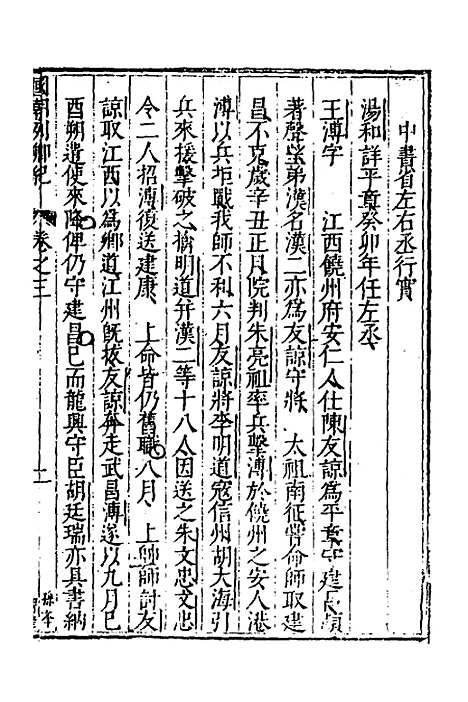 中書省左右丞行實
湯和詳平章癸卯年任左丞
王溥字　江西饒州府安仁人仕陳友諒為平章守建昌頗
著聲望弟漢名漢二亦為友諒守將　太祖南征嘗命師取建
昌不克歲辛丑正月院判朱亮祖率兵擊溥於饒州之安人港
溥以兵拒戰我師不利六月友諒將李明道寇信州胡大海引
兵來援擊破之擒明道并漢二等十八人因送之朱文忠文忠
令二人招溥復送建康　上命皆仍舊職八月　上帥師討友
諒取江西以為鄉道江州旣拔友諒奔走武昌溥遂以九月己
酉朔遣使來降俾仍守建昌已而龍興守臣胡廷瑞亦具書納
國朝列卿紀　卷之三